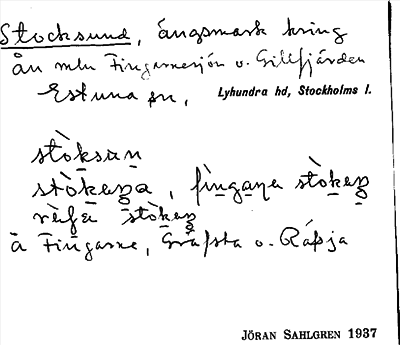 Stocksund, ängsmark kring
ån mln Fingarnesjön o. Gillfjärden
Estuna sn, Lyhundra hd, Stockholms l.
stòksan
stòkaṇa, fìngaṇa stòkaṇ
stòkaṇ
à Fingarne, Gräfsta o. Räfsja
JÖRAN SAHLGREN 1937